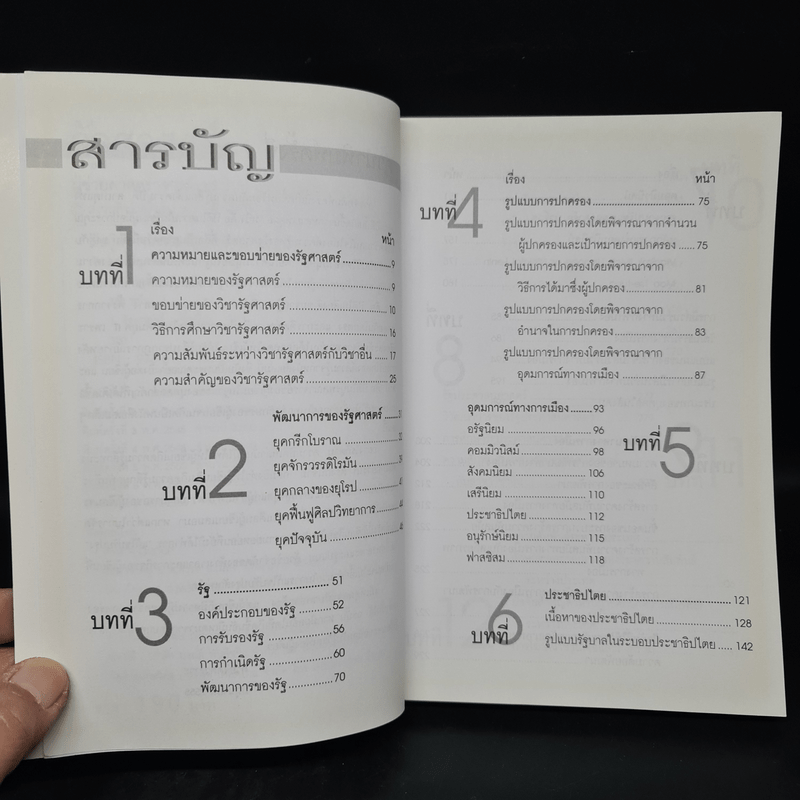 สารบัญ
บทที่ 1
เรื่อง หน้า
ความหมายและขอบข่ายของรัฐศาสตร์ 9
ความหมายของรัฐศาสตร์ 9
ขอบข่ายของวิชารัฐศาสตร์ 10
วิธีการศึกษาวิชารัฐศาสตร์ 16
ความสัมพันธ์ระหว่างวิชารัฐศาสตร์กับวิชาอื่น 17
ความสำคัญของวิชารัฐศาสตร์ 25
บทที่ 2
พัฒนาการของรัฐศาสตร์
ยุคกรีกโบราณ
ยุคจักรวรรดิโรมัน
ยุคกลางของยุโรป
ยุคฟื้นฟูศิลปวิทยาการ
ยุคปัจจุบัน
บทที่ 3
รัฐ 51
องค์ประกอบของรัฐ 52
การรับรองรัฐ 56
การกำเนิดรัฐ 60
พัฒนาการของรัฐ 70
บทที่ 4
เรื่อง หน้า
รูปแบบการปกครอง 75
รูปแบบการปกครองโดยพิจารณาจากจำนวน
ผู้ปกครองและเป้าหมายการปกครอง 75
รูปแบบการปกครองโดยพิจารณาจาก
วิธีการได้มาซึ่งผู้ปกครอง 81
รูปแบบการปกครองโดยพิจารณาจาก
อำนาจในการปกครอง 83
รูปแบบการปกครองโดยพิจารณาจาก
อุดมการณ์ทางการเมือง 87
บทที่ 5
อุดมการณ์ทางการเมือง 93
อรัฐนิยม 96
คอมมิวนิสม์ 98
สังคมนิยม 106
เสรีนิยม 110
ประชาธิปไตย 112
อนุรักษ์นิยม 115
ฟาสซิสม 118
บทที่ 6
ประชาธิปไตย 121
เนื้อหาของประชาธิปไตย 128
รูปแบบรัฐบาลในระบอบประชาธิปไตย 142